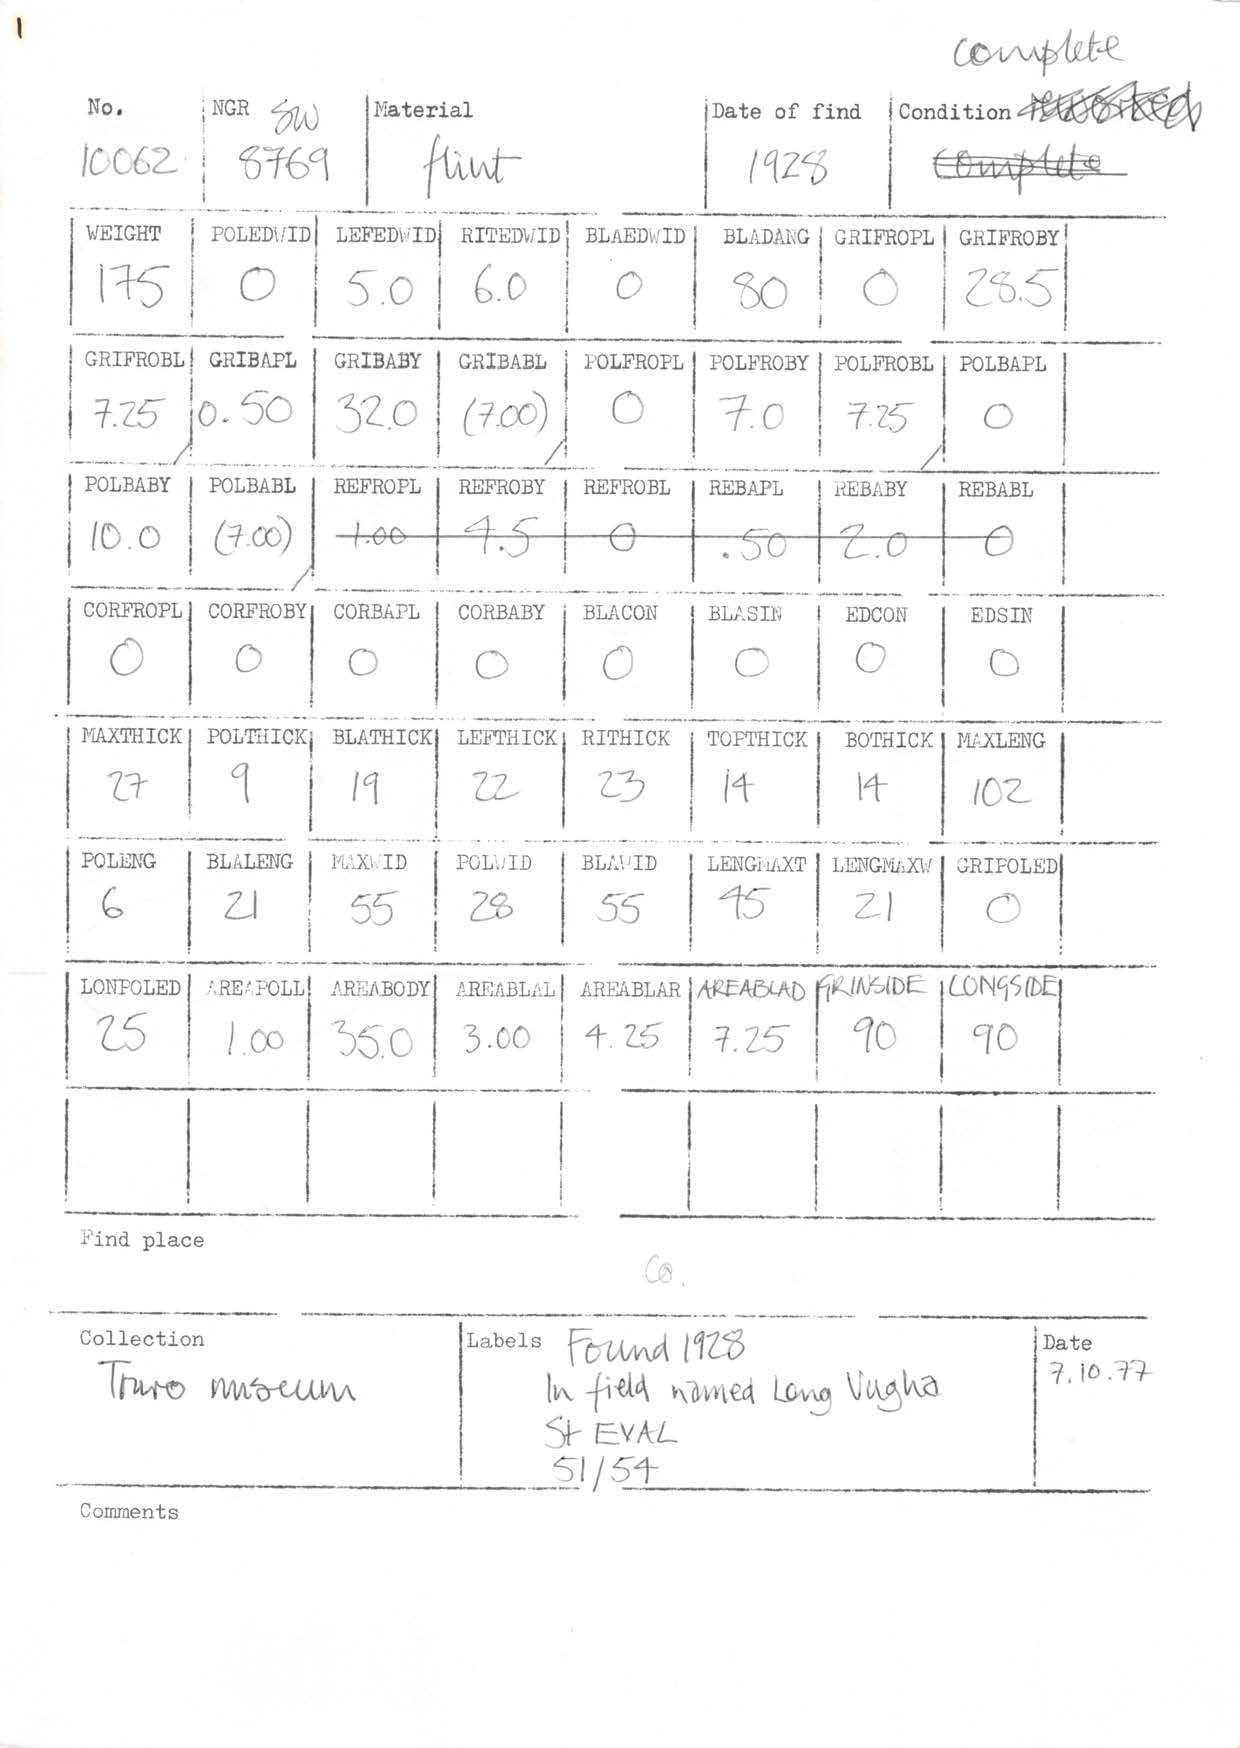 1
complete
No. NGR SW Material Date of find Condition
10062 8769 flint 1928 complete
WEIGHT POLEDWID LEFEDWID RITEDWID BLAEDWID BLADANG GRIFROPL GRIFROBY
175 0 5.0 6.0 0 80 0 28.5
GRIFROBL GRIBAPL GRIBABY GRIBABL POLFROPL POLFROBY POLFROBL POLBAPL
7.25 0.50 32.0 (7.00) 0 7.0 7.25 0
POLBABY POLBABL REFROPL REFROBY REFROBL REBAPL REBABY REBABL
10.0 (7.00) 1.00 4.5 0 .50 2.0 0
CORFROPL CORFROBY CORBAPL CORBABY BLACON BLASIN EDCON EDSIN
0 0 0 0 0 0 0 0
MAXTHICK POLTHICK BLATHICK LEFTHICK RITHICK TOPTHICK BOTHICK MAXLENG
27 9 19 22 23 14 14 102
POLENG BLALENG MAXWID POLWID BLAWID LENGMAXT LENGMAXW GRIPOLED
6 21 55 28 55 45 21 0
LONPOLED AREAPOLL AREABODY AREABLAL AREABLAR AREABLAD GRINSIDE LONGSIDE
25 1.00 35.0 3.00 4.25 7.25 90 90
Find place
Co.
Collection Labels Found 1928 Date
Truro museum In field named Long Vugha 7.10.77
St EVAL
51/54
Comments